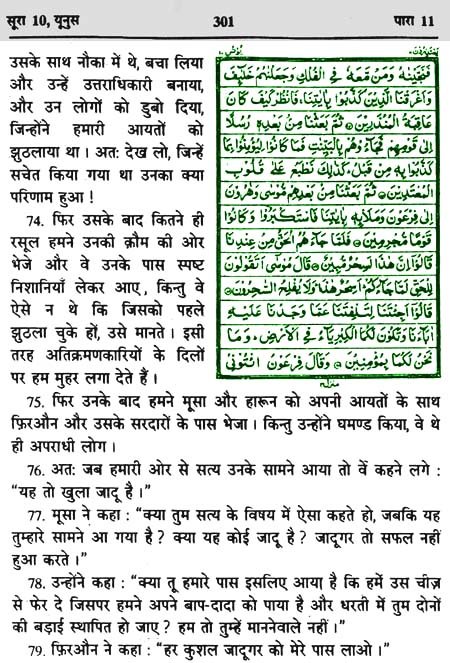 सूरा 10, यूनुस 301 पारा 11
उसके साथ नौका में थे, बचा लिया
और उन्हें उत्तराधिकारी बनाया,
और उन लोगों को डुबो दिया,
जिन्होंने हमारी आयतों को
झुठलाया था। अतः देख लो, जिन्हें
सचेत किया गया था उनका क्या
परिणाम हुआ !
74. फिर उसके बाद कितने ही
रसूल हमने उनकी क़ौम की ओर
भेजे और वे उनके पास स्पष्ट
निशानियाँ लेकर आए, किन्तु वे
ऐसे न थे कि जिसको पहले
झुठला चुके हों, उसे मानते। इसी
तरह अतिक्रमणकारियों के दिलों
पर हम मुहर लगा देते हैं।
فَنَجَّيْنٰهُ وَمَنْ مَّعَهٗ فِي الْفُلْكِ وَجَعَلْنٰهُمْ خَلٰٓئِفَ
وَاَغْرَقْنَا الَّذِيْنَ كَذَّبُوْا بِاٰيٰتِنَا فَانْظُرْ كَيْفَ كَانَ
عَاقِبَةُ الْمُنْذَرِيْنَ ۞ ثُمَّ بَعَثْنَا مِنْۢ بَعْدِهٖ رُسُلًا
اِلٰى قَوْمِهِمْ فَجَآءُوْهُمْ بِالْبَيِّنٰتِ فَمَا كَانُوْا لِيُؤْمِنُوْا بِمَا
كَذَّبُوْا بِهٖ مِنْ قَبْلُ كَذٰلِكَ نَطْبَعُ عَلٰى قُلُوْبِ
الْمُعْتَدِيْنَ ۞ ثُمَّ بَعَثْنَا مِنْۢ بَعْدِهِمْ مُّوْسٰى وَهٰرُوْنَ
اِلٰى فِرْعَوْنَ وَمَلَا۟ئِهٖ بِاٰيٰتِنَا فَاسْتَكْبَرُوْا وَكَانُوْا
قَوْمًا مُّجْرِمِيْنَ ۞ فَلَمَّا جَآءَهُمُ الْحَقُّ مِنْ عِنْدِنَا
قَالُوْٓا اِنَّ هٰذَا لَسِحْرٌ مُّبِيْنٌ ۞ قَالَ مُوْسٰٓى اَتَقُوْلُوْنَ
لِلْحَقِّ لَمَّا جَآءَكُمْ اَسِحْرٌ هٰذَا وَلَا يُفْلِحُ السّٰحِرُوْنَ ۞
قَالُوْٓا اَجِئْتَنَا لِتَلْفِتَنَا عَمَّا وَجَدْنَا عَلَيْهِ
اٰبَآءَنَا وَتَكُوْنَ لَكُمَا الْكِبْرِيَآءُ فِي الْاَرْضِ وَمَا
نَحْنُ لَكُمَا بِمُؤْمِنِيْنَ ۞ وَقَالَ فِرْعَوْنُ ائْتُوْنِيْ
75. फिर उनके बाद हमने मूसा और हारून को अपनी आयतों के साथ
फ़िरऔन और उसके सरदारों के पास भेजा। किन्तु उन्होंने घमण्ड किया, वे थे
ही अपराधी लोग।
76. अतः जब हमारी ओर से सत्य उनके सामने आया तो वे कहने लगे :
“यह तो खुला जादू है।”
77. मूसा ने कहा : “क्या तुम सत्य के विषय में ऐसा कहते हो, जबकि यह
तुम्हारे सामने आ गया है? क्या यह कोई जादू है? जादूगर तो सफल नहीं
हुआ करते।”
78. उन्होंने कहा : “क्या तू हमारे पास इसलिए आया है कि हमें उस चीज़
से फेर दे जिसपर हमने अपने बाप-दादा को पाया है और धरती में तुम दोनों
की बड़ाई स्थापित हो जाए? हम तो तुम्हें माननेवाले नहीं।”
79. फ़िरऔन ने कहा : “हर कुशल जादूगर को मेरे पास लाओ।”